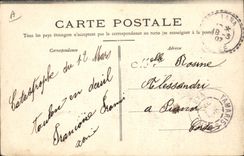 A
CARTE POSTALE
Tous les pays étrangers n'acceptent pas la correspondance au recto (se renseigner à la poste)
Correspondance
Catastrophe du 12 Mars
Toulon en deuil
Françoise
amie
Melle Rosine
Alessandri
à Piana
Corse